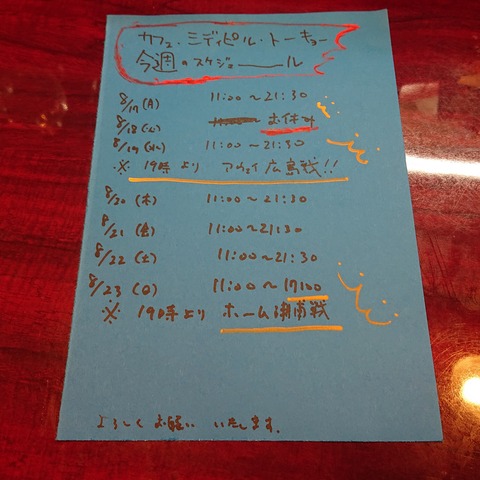 カフェ・ミディピル・トーキョー
今週のスケジュール
8/17(月) 11:00〜21:30
8/18(火) お休み
8/19(水) 11:00〜21:30
※ 19時より アウェイ広島戦!!
8/20(木) 11:00〜21:30
8/21(金) 11:00〜21:30
8/22(土) 11:00〜21:30
8/23(日) 11:00〜17:00
※ 19時より ホーム浦戦
よろしくお願いいたします。